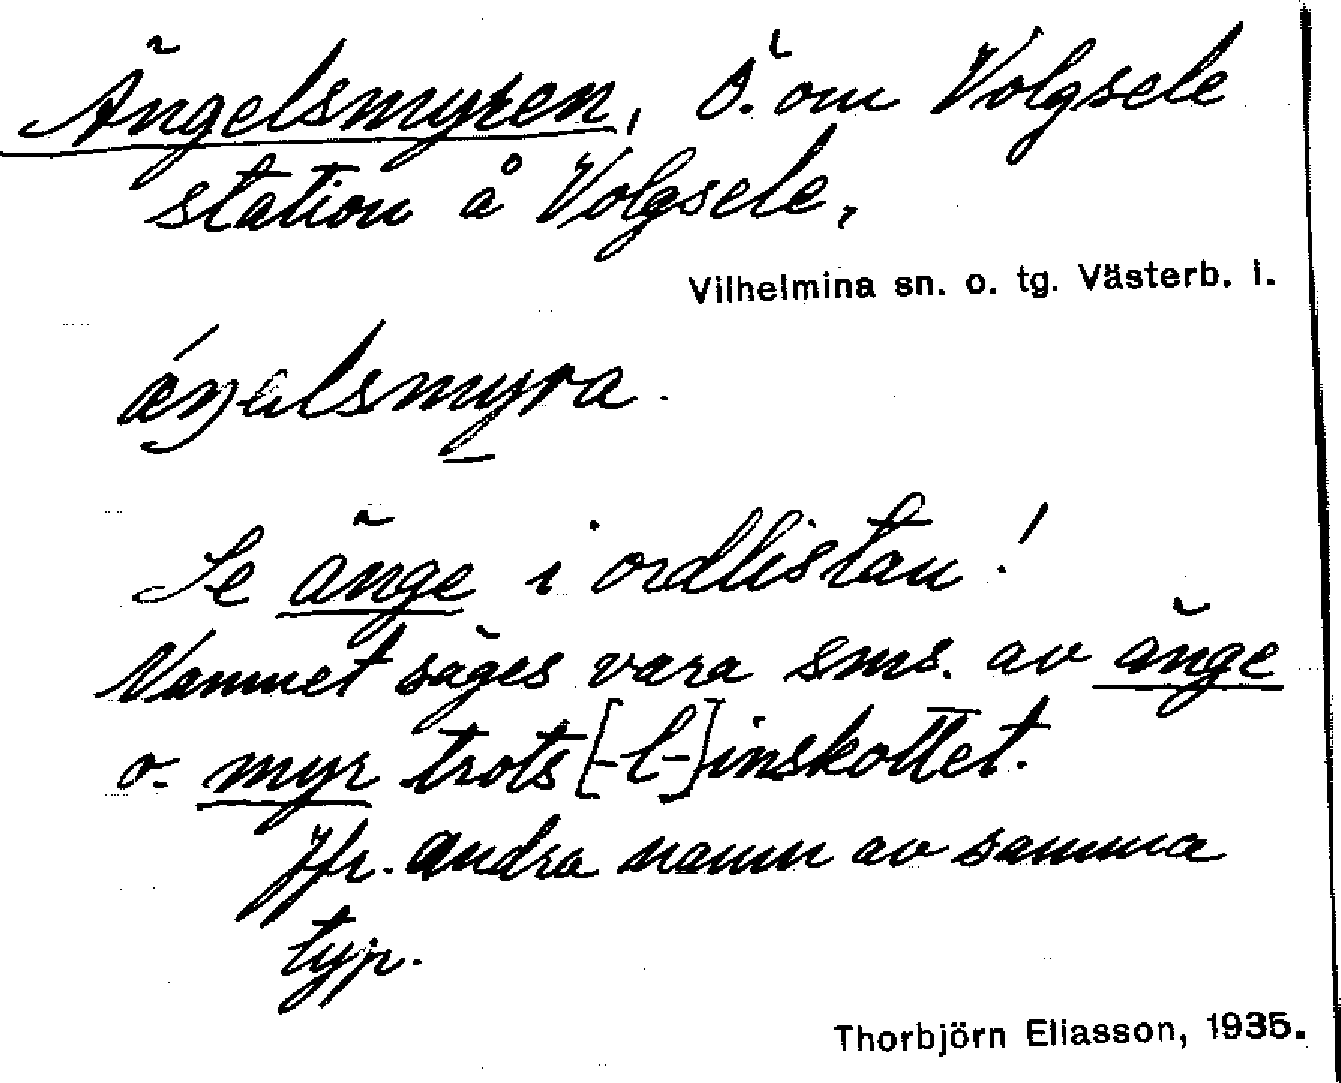 Ängelsmyren, Ö. om Volgsele
station å Volgsele,
Vilhelmina sn. o. tg. Västerb. l.
ä́ŋəlsmyra.
Se änge i ordlistan!
Namnet säges vara sms. av änge
o. myr trots [-l-] inskottet.
Jfr. andra namn av samma
typ.
Thorbjörn Eliasson, 1935.